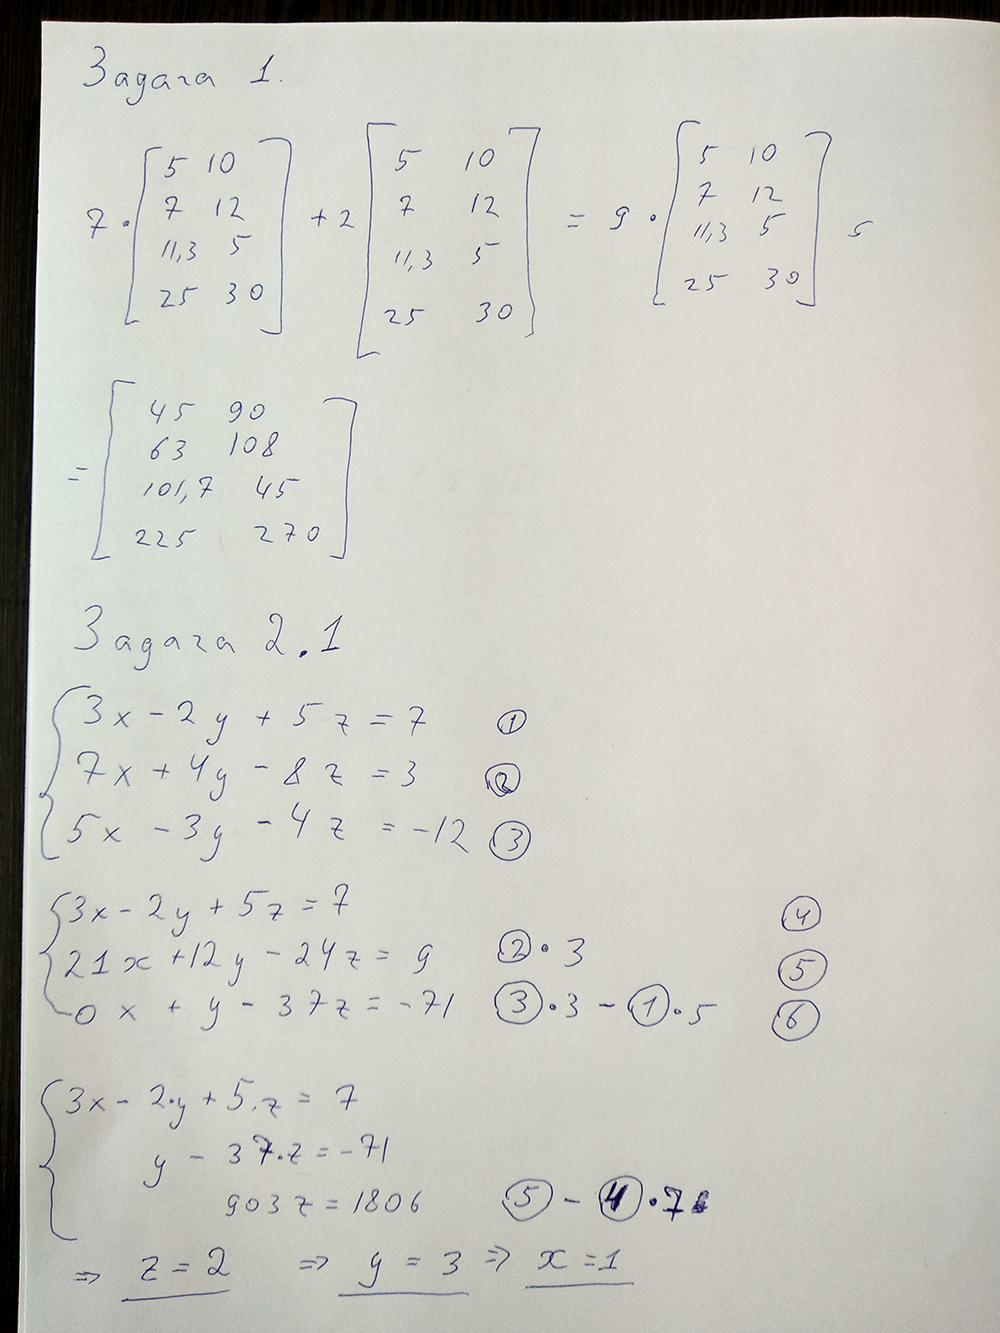 Задача 1.
7 · [5 10; 7 12; 11,3 5; 25 30] + 2 [5 10; 7 12; 11,3 5; 25 30] = 9 · [5 10; 7 12; 11,3 5; 25 30] =
= [45 90; 63 108; 101,7 45; 225 270]
Задача 2.1
3x - 2y + 5z = 7 ①
7x + 4y - 8z = 3 ②
5x - 3y - 4z = -12 ③
3x - 2y + 5z = 7 ④
21x + 12y - 24z = 9 ②·3 ⑤
0x + y - 37z = -71 ③·3 - ①·5 ⑥
3x - 2·y + 5·z = 7
y - 37·z = -71
903z = 1806 ⑤ - ④·7
=> z = 2 => y = 3 => x = 1